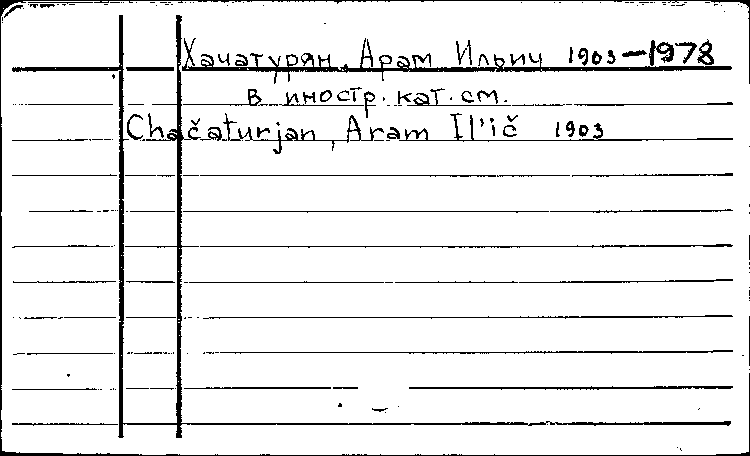 Хачатурян, Арам Ильич 1903–1978
в иностр. кат. см.
Chačaturjan, Aram Il'ič 1903